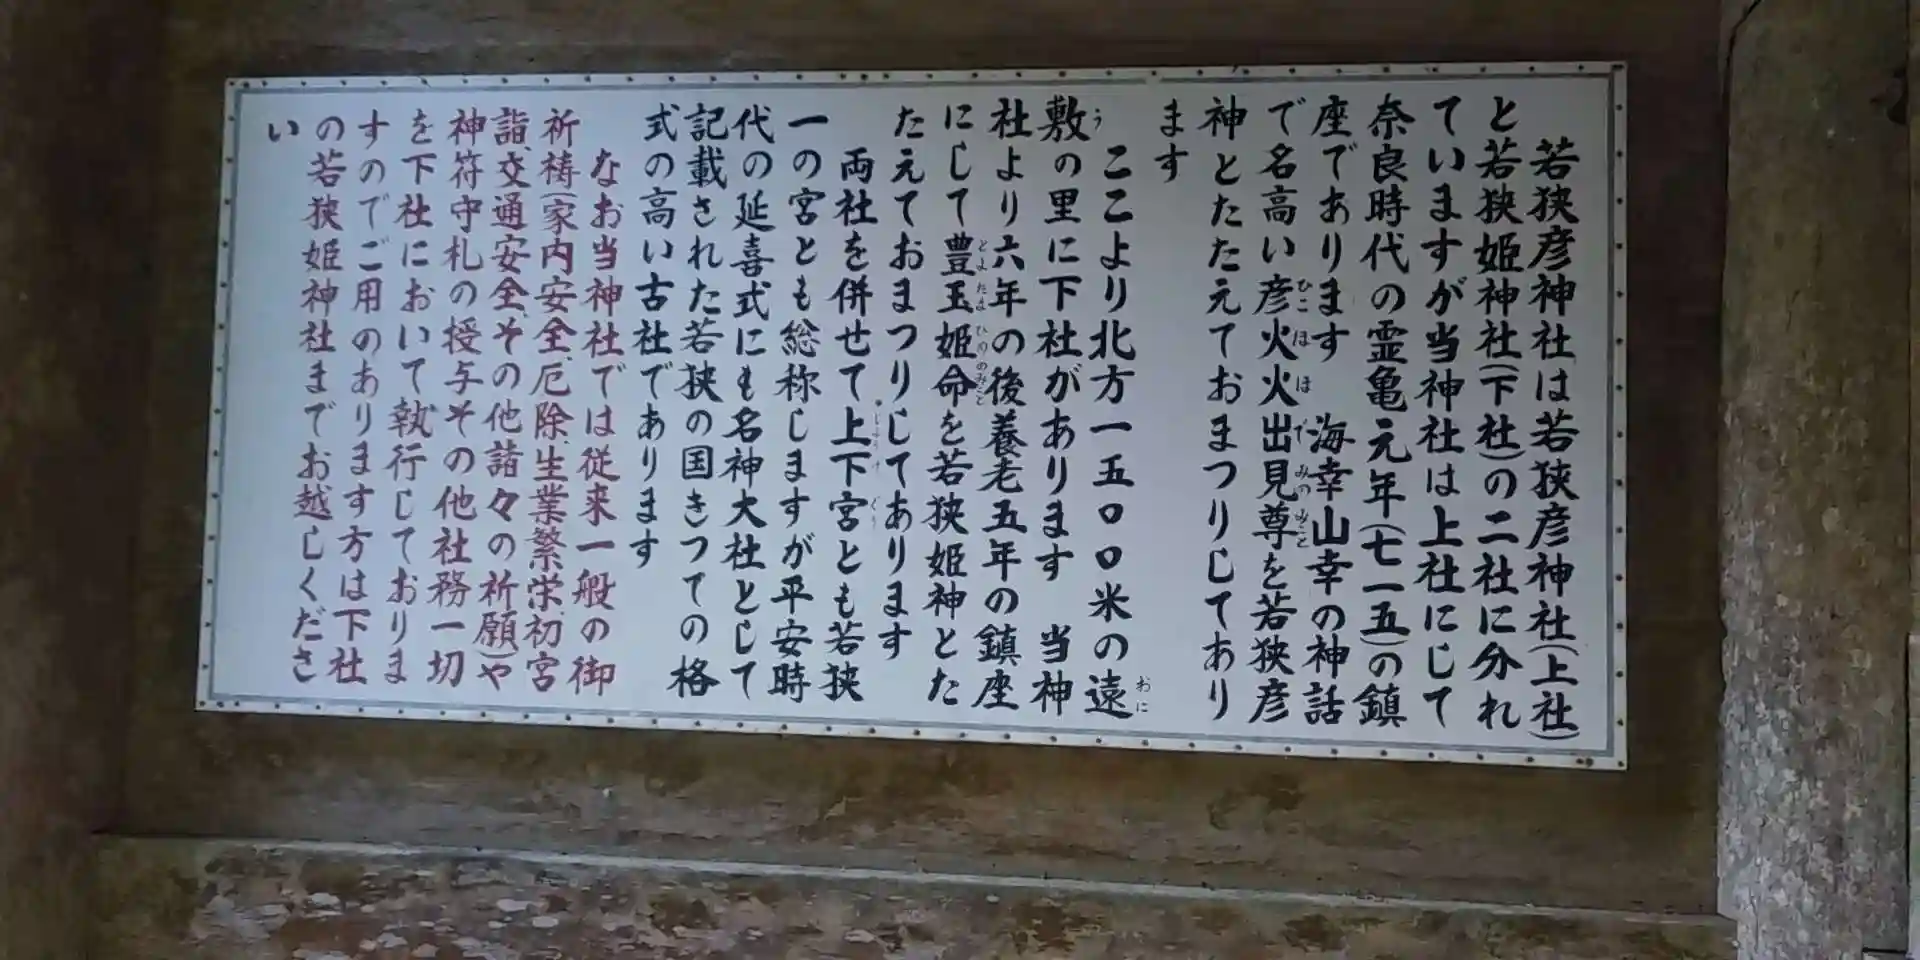 若狭彦神社は若狭彦神社(上社)
と若狭姫神社(下社)の二社に分れ
ていますが当神社は上社にして
奈良時代の霊亀元年(七一五)の鎮
座であります 海幸山幸の神話
で名高い彦火火出見尊を若狭彦
神とたたえておまつりしてあり
ます
ここより北方一五〇〇米の遠
敷の里に下社があります 当神
社より六年の後養老五年の鎮座
にして豊玉姫命を若狭姫神とた
たえておまつりしてあります
両社を併せて上下宮とも若狭
一の宮とも総称しますが平安時
代の延喜式にも名神大社として
記載された若狭の国きつての格
式の高い古社であります
なお当神社では従来一般の御
祈祷(家内安全、厄除、生業繁栄、初宮
詣、交通安全、その他諸々の祈願)や
神符守札の授与その他社務一切
を下社において執行しておりま
すのでご用のあります方は下社
の若狭姫神社までお越しくださ
い